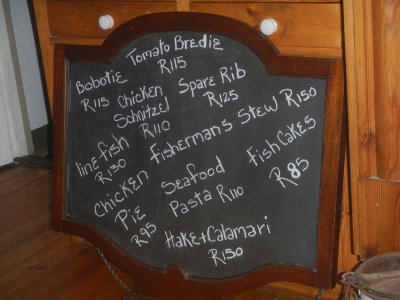 Tomato Bredie
R115
Bobotie
R115
Chicken
Schnitzel
R110
Spare Rib
R125
line fish
R130
Fisherman's Stew R150
Chicken
Pie
R95
Seafood
Pasta R110
Fish Cakes
R85
Hake + Calamari
R150